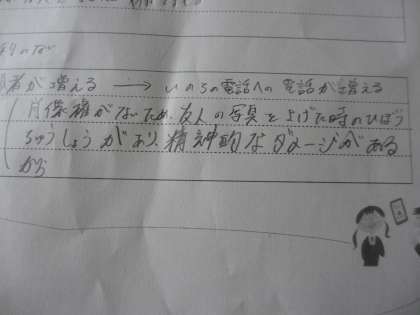 者が増える → いのちの電話への電話が増える
(肖像権がないため、友人の写真を上げた時のひぼう
ちゅうしょうがあり、精神的なダメージがある
から